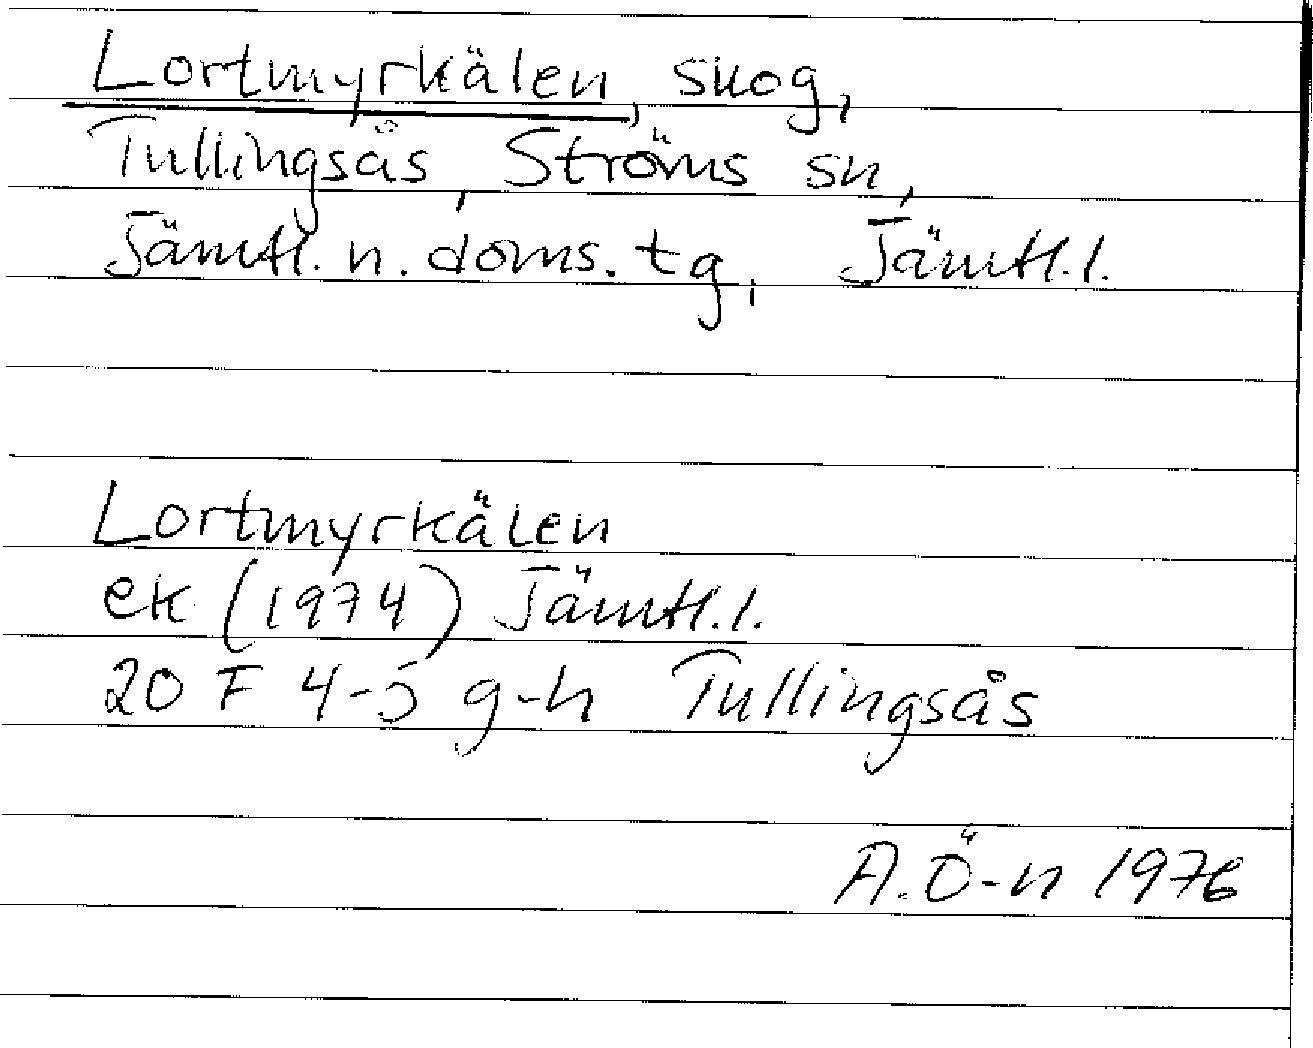 Lortmyrkälen, skog,
Tullingsås, Ströms sn,
Jämtl. n. doms. tg, Jämtl. l.
Lortmyrkälen
ek (1974) Jämtl. l.
20 F 4-5 g-h Tullingsås
A. Ö-n 1976